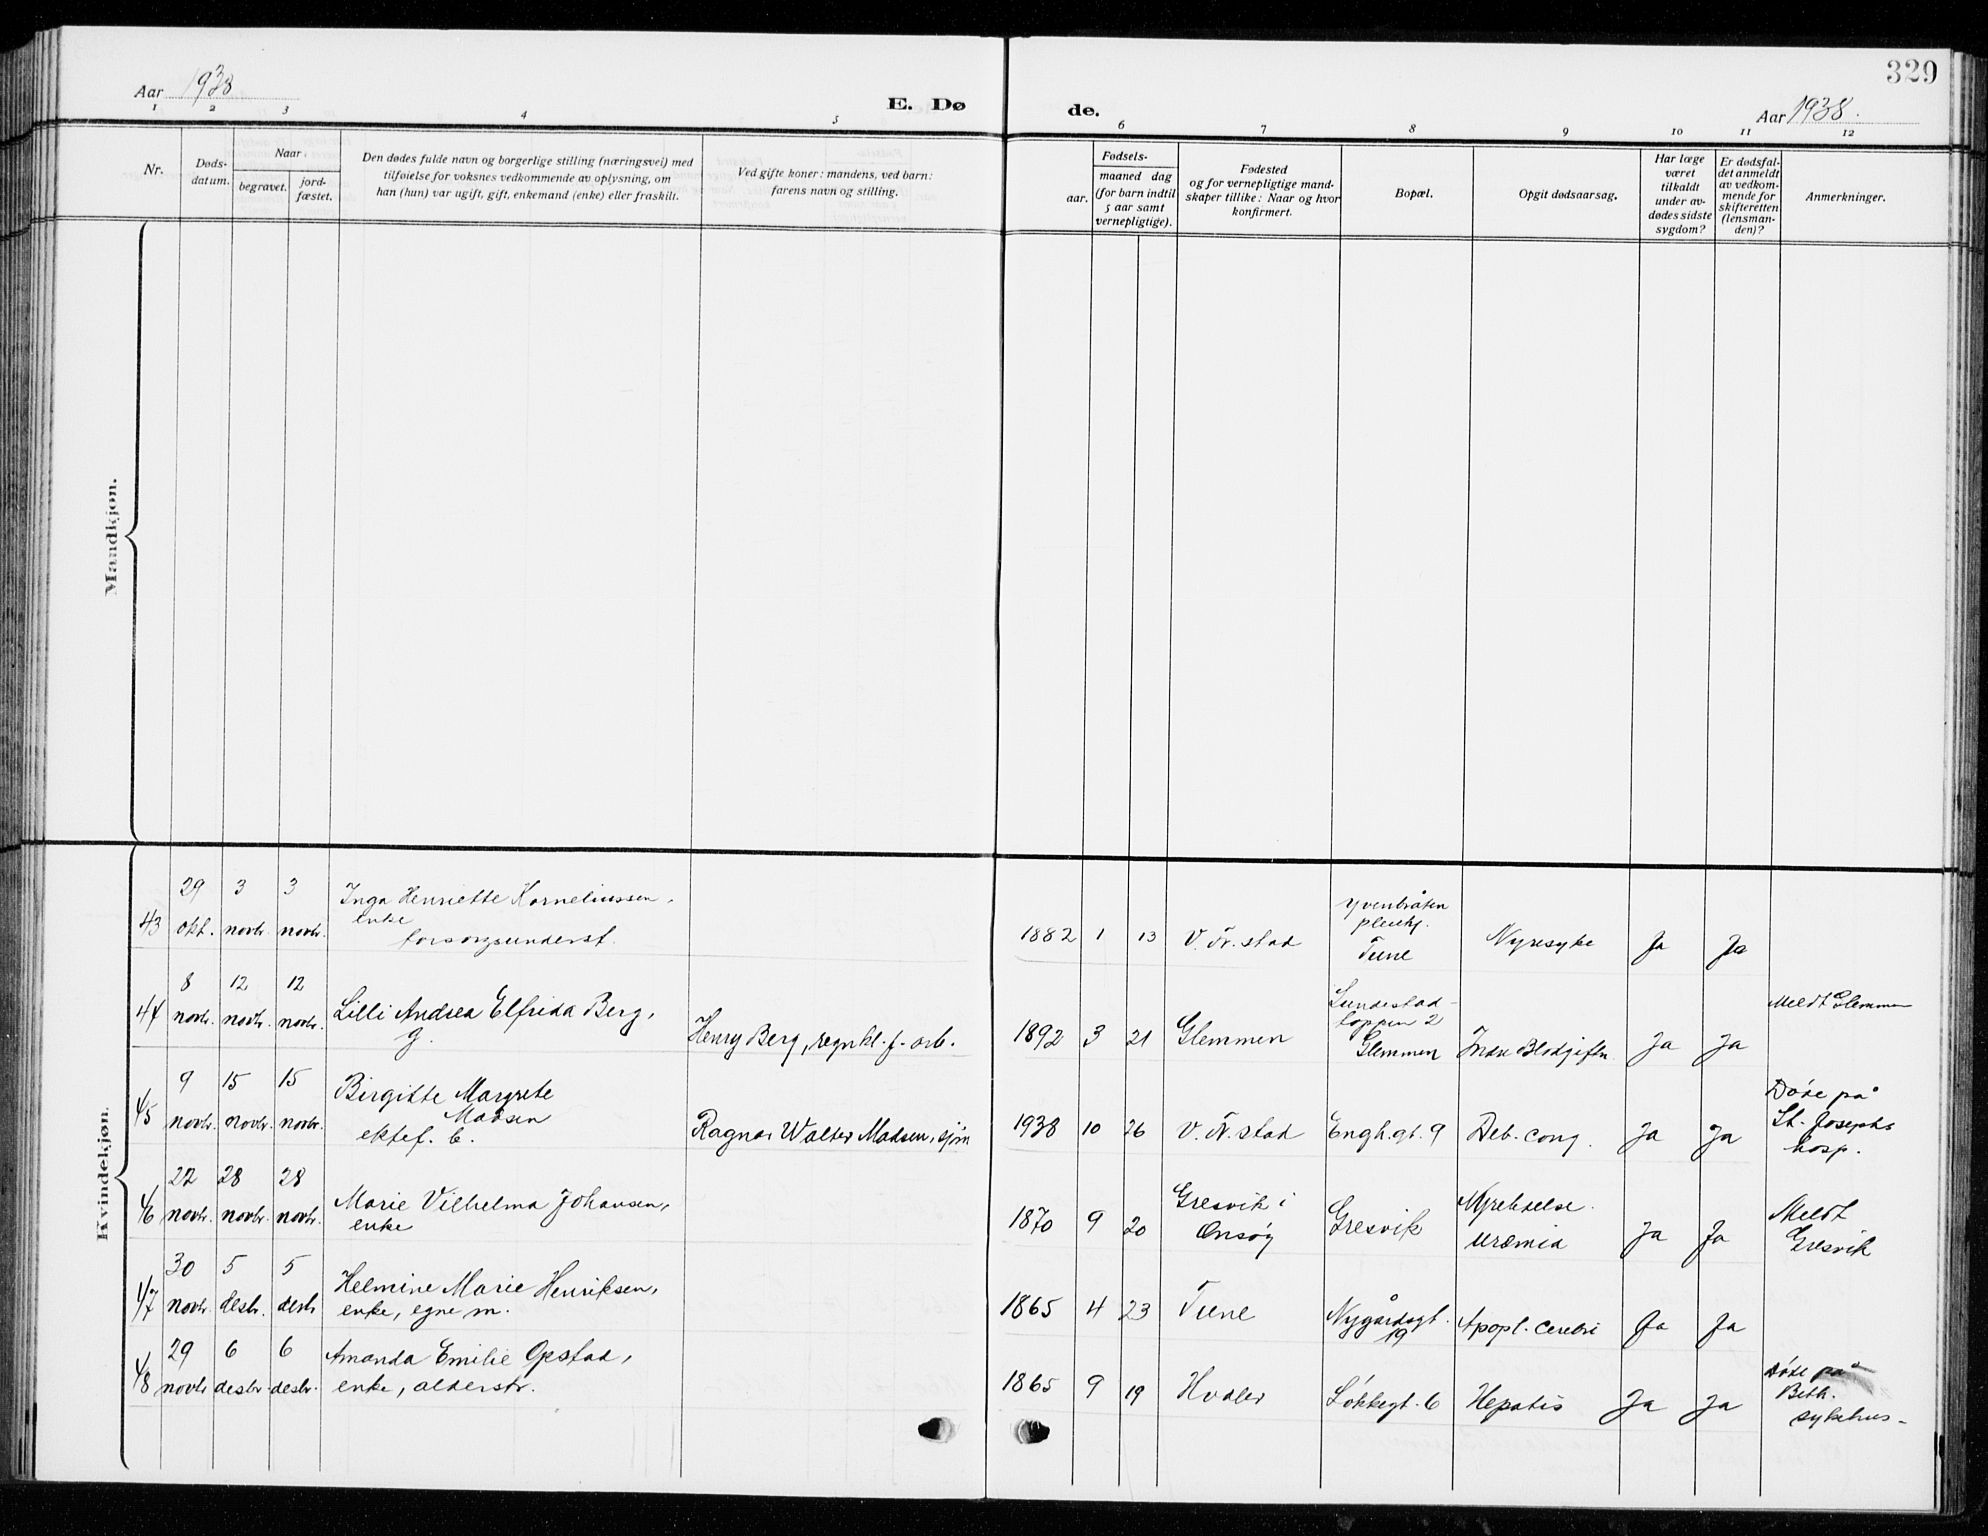 329
Aar 1938
E. Dø de.
Aar 1938.
1 2 3 4 5 6 7 8 9 10 11 12
Nr.
Døds-
datum.
Naar
begravet.
jord-
fæstet.
Den dødes fulde navn og borgerlige stilling (næringsvei) med
tilføielse for voksnes vedkommende av oplysning, om
han (hun) var ugift, gift, enkemand (enke) eller fraskilt.
Ved gifte koner: mandens, ved barn:
farens navn og stilling.
Fødsels-
aar.
maaned dag
(for barn indtil
5 aar samt
vernepligtige).
Fødested
og for vernepligtige mand-
skaper tillike: Naar og hvor
konfirmert.
Bopæl.
Opgit dødsaarsag.
Har læge
været
tilkaldt
under av-
dødes sidste
sygdom?
Er dødsfal-
det anmeldt
av vedkom-
mende for
skifteretten
(lensman-
den)?
Anmerkninger.
Mandkjøn.
Kvindekjøn.
43
29 3 3
okt. novbr. novbr.
Inga Henriette Korneliussen,
enke
forsorgsunderst.
1882 1 13
V. Fr.stad
Yvenbråten
pleiehj.
Tune
Nyresyke
Ja Ja
44
8 12 12
novbr. novbr. novbr.
Lilli Andrea Elfrida Berg,
g.
Henry Berg, regnkl.f. arb.
1892 3 21
Glemmen
Lundestad-
toppen 2
Glemmen
Indre Blodgiftn.
Ja Ja
Meldt Glemmen
45
9 15 15
novbr. novbr. novbr.
Birgitte Margrete
Madsen
ektef. b.
Ragnar Walter Madsen, sjm
1938 10 26
V. Fr.stad
Engh.gt. 9
Deb. cong.
Ja Ja
Døde på
St. Josephs
hosp.
46
22 28 28
novbr. novbr. novbr.
Marie Vilhelma Johansen,
enke
1870 9 20
Gresvik i
Onsøy
Gresvik
Nyrelidelse.
uræmia
Ja Ja
Meldt
Gresvik
47
30 5 5
novbr. desbr. desbr
Helmine Marie Henriksen,
enke, egne m.
1865 4 23
Tune
Nygårdsgt.
19
Apopl. cerebri
Ja Ja
48
29 6 6
novbr desbr. desbr.
Amanda Emilie Opstad,
enke, alderstr.
1865 9 19
Hvaler
Løkkegt. 6
Hepatis
Ja Ja
Døde på
Beth.
sykehus-